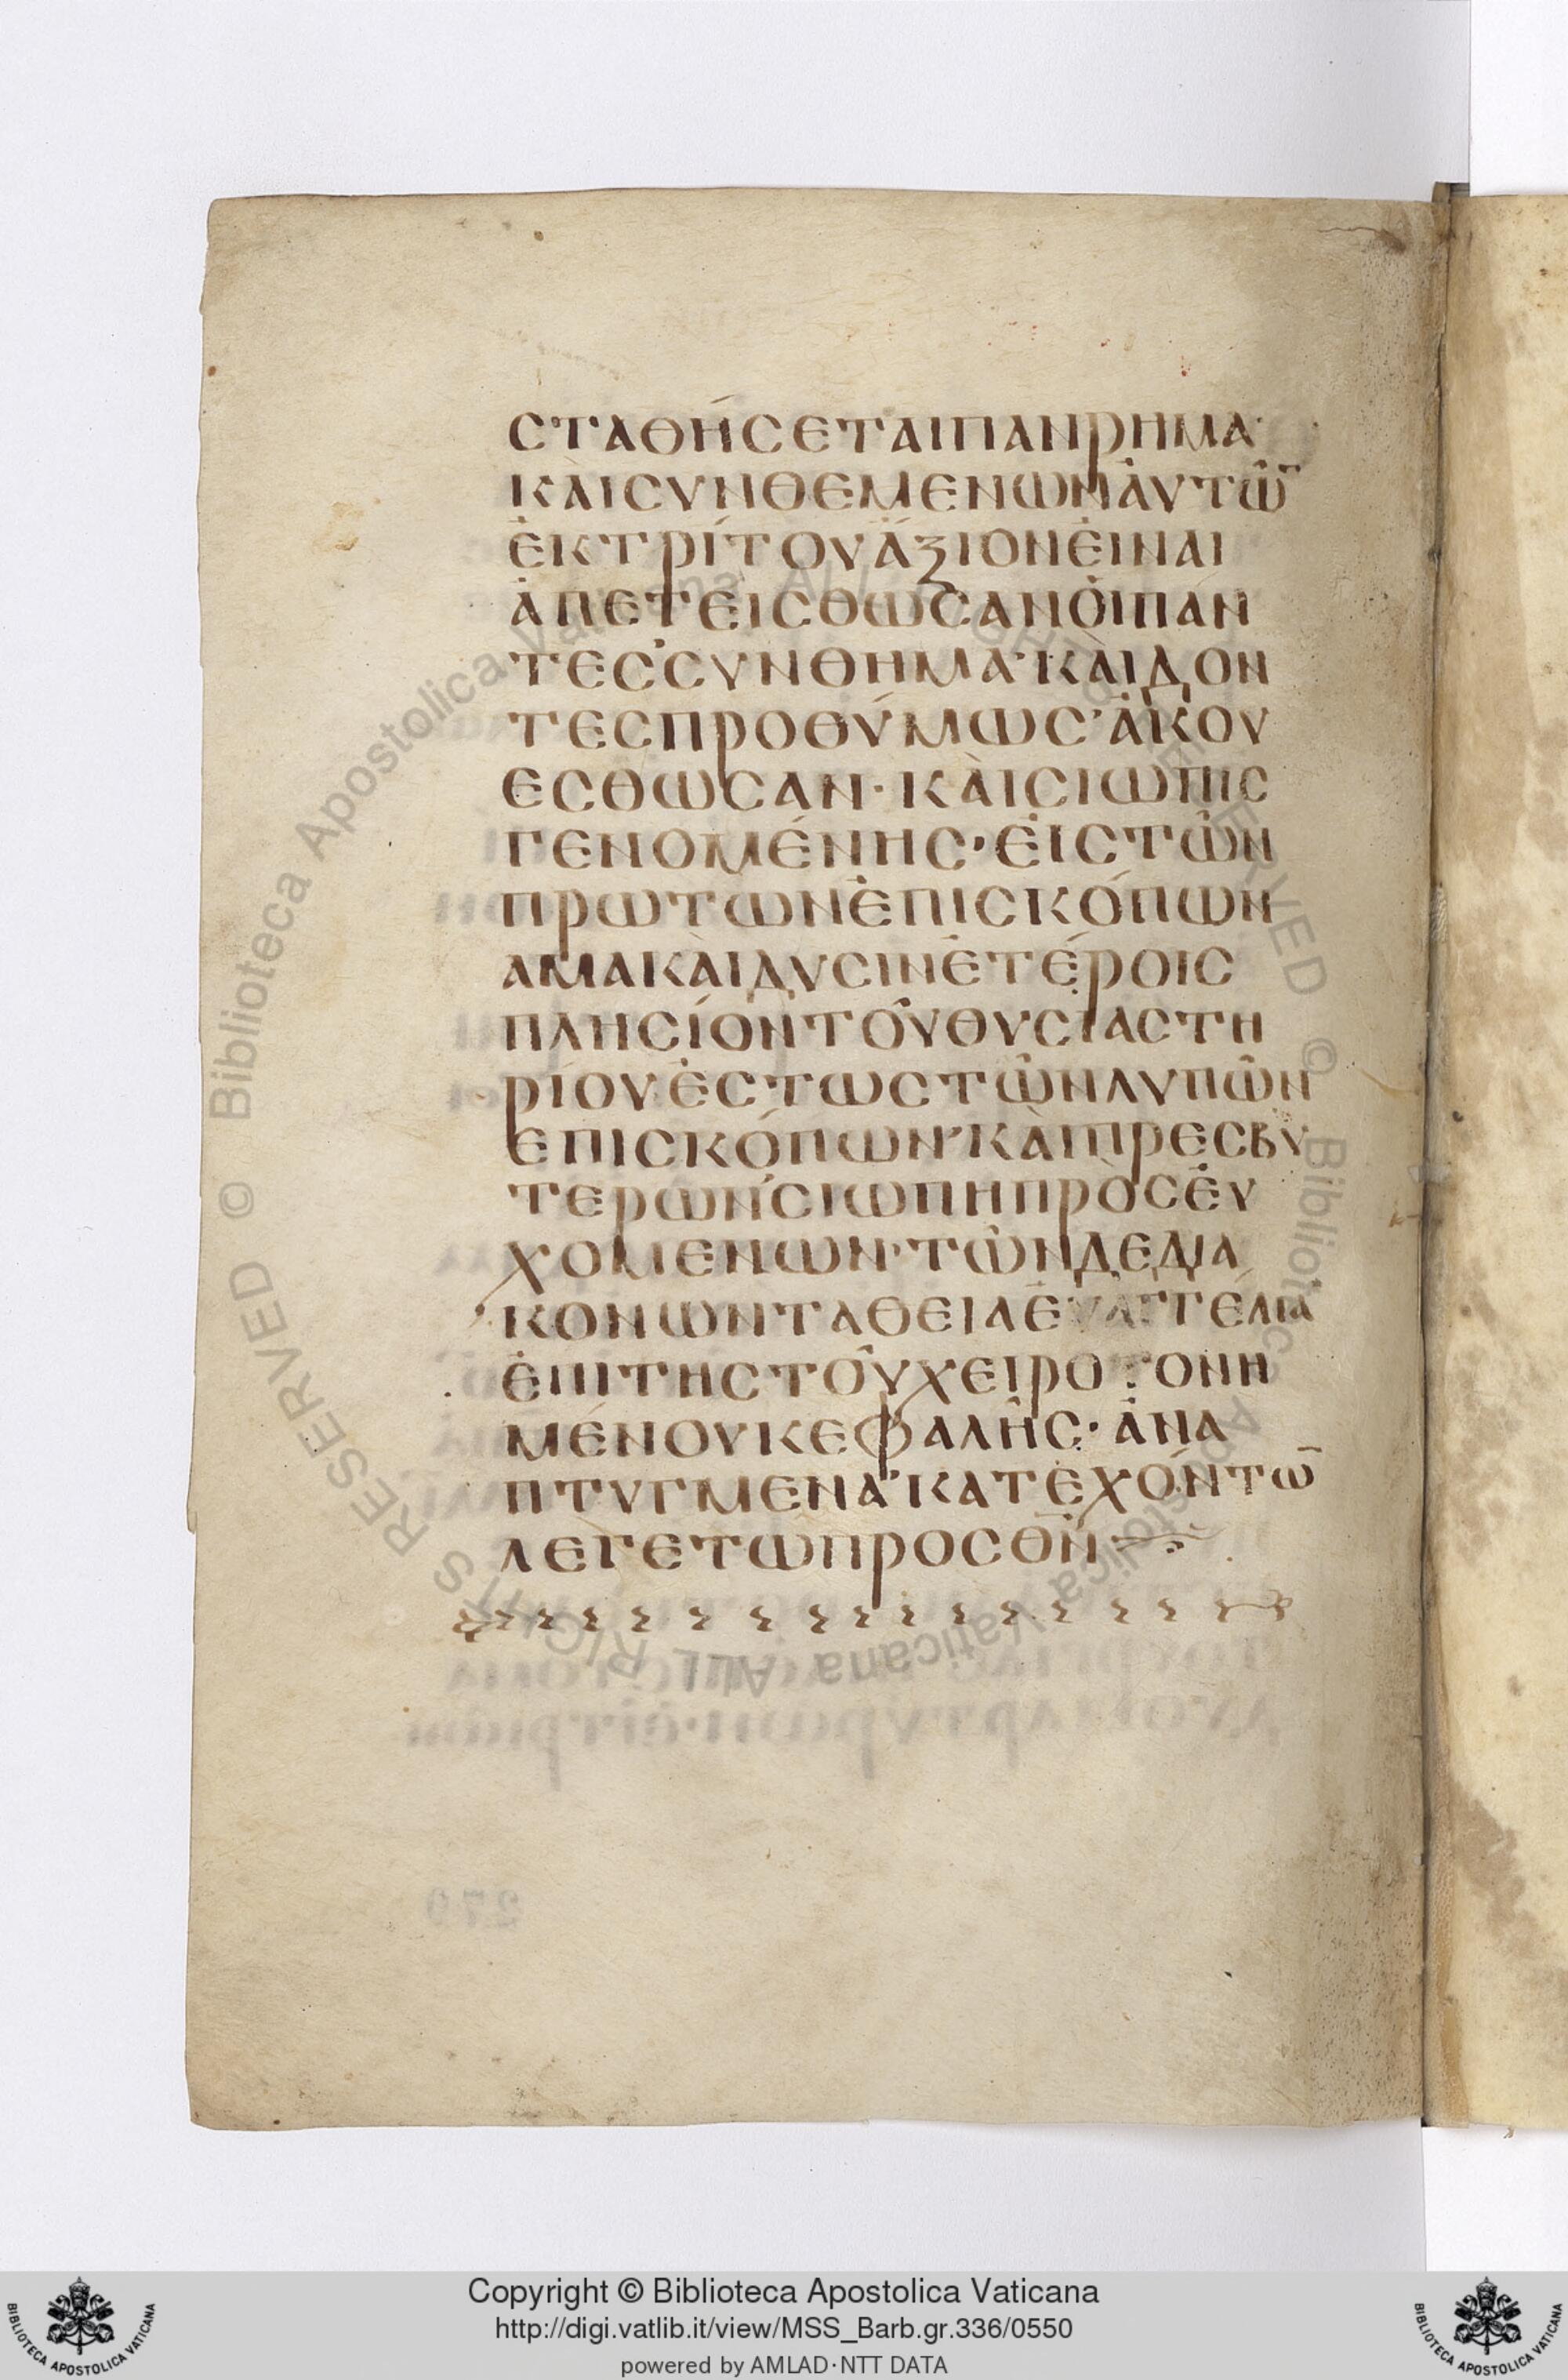 ϹΤΑΘΉϹΕΤΑΙΠΑΝΡΗΜΑ·
ΚᾺΙϹΥΝΘΕΜΕΝΩΝἈΥΤΩ͂̅
ἘΚΤΡΊΤΟΥἌΞΙΟΝἘΙΝΑΙ
ἈΠΕΤΕΙϹΘΩϹΑΝὉΙΠΑΝ
ΤΕϹϹΥΝΘΗΜΑ·ΚᾺΙΔΟΝ
ΤΕϹΠΡΟΘΎΜΩϹ·ἈΚΟΥ
ΕϹΘΩϹΑΝ·ΚᾺΙϹΙΩΠΙϹ
ΓΕΝΟΜΈΝΗϹ·ἘΙϹΤΩ͂Ν
ΠΡΩΤΩΝἘΠΙϹΚΌΠΩΝ
ΑΜΑΚᾺΙΔΥϹΙΝἙΤΈΡΟΙϹ
ΠΛΗϹΊΟΝΤΟΥ͂ΘΥϹΙΑϹΤΗ
ΡΙΟΥἙϹΤΩϹΤΩ͂ΝΛΥΠΩ͂Ν
ΕΠΙϹΚΌΠΩΝ·ΚᾺΙΠΡΕϹΒΥ
ΤΕΡΩΝ·ϹΙΩΠΗΠΡῸϹἘΥ
ΧΟΜΕΝΩΝ·ΤΩ͂ΝΔΕΔΙΑ
ΚΟΝΩΝΤΑΘΕΙΑἘΥΑΓΓΈΛΙΑ
ἘΠΙΤΗϹΤΟΥ͂ΧΕΙΡΟΤΟΝΗ
ΜΈΝΟΥΚΕΦΑΛΗ͂Ϲ·ἈΝΑ
ΠΤΥΓΜΕΝΑ·ΚΑΤΕΧΌΝΤΩ̅
ΛΕΓΕΤΩΠΡΟϹΘ̅Ν̅
Copyright © Biblioteca Apostolica Vaticana
http://digi.vatlib.it/view/MSS_Barb.gr.336/0550
powered by AMLAD·NTT DATA